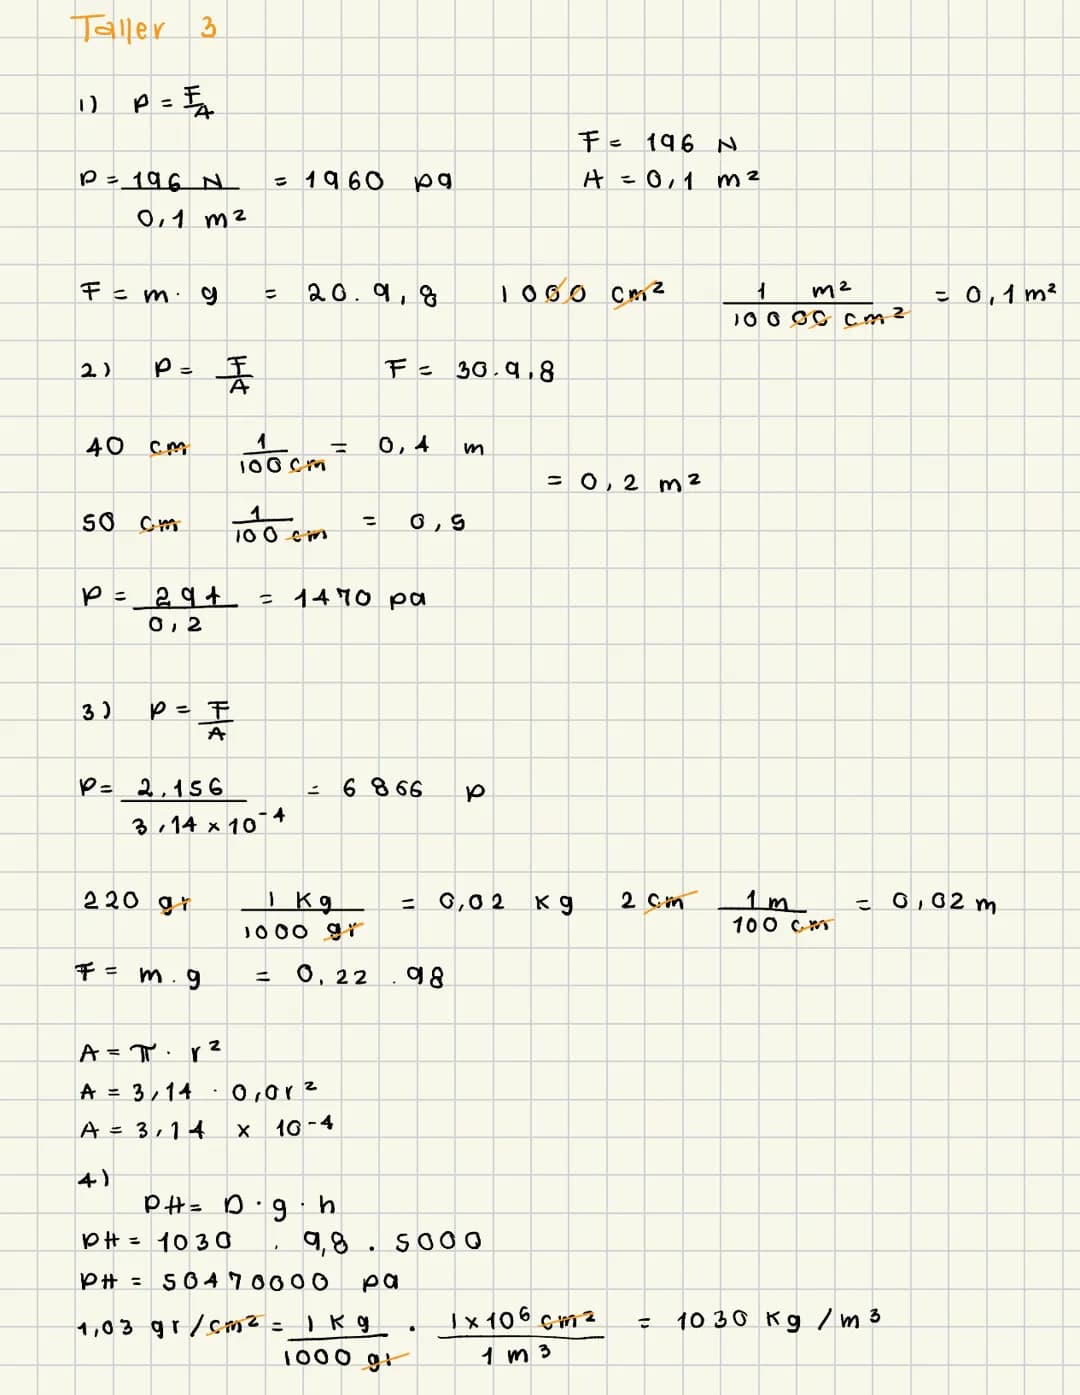 Taller 3
1) P = F/A
F = 196 N
P = 196 N / 0,1 m² = 1960 pa
A = 0,1 m²
F = m . g = 20 . 9,8 1000 cm² 1 m² / 10000 cm² = 0,1 m²
2) P = F/A F = 30 . 9,8
40 cm 1 / 100 cm = 0,4 m
= 0,2 m²
50 cm 1 / 100 cm = 0,5
P = 294 / 0,2 = 1470 pa
3) P = F/A
P = 2,156 / 3,14 x 10⁻⁴ = 6866 p
220 gr 1 Kg / 1000 gr = 0,02 Kg 2 cm 1 m / 100 cm = 0,02 m
F = m . g = 0,22 . 98
A = π . r²
A = 3,14 . 0,0r²
A = 3,14 x 10⁻⁴
4)
PH = D . g . h
PH = 1030 . 9,8 . 5000
PH = 50470000 pa
1,03 gr / cm² = 1 Kg / 1000 gr . 1 x 10⁶ cm² / 1 m³ = 1030 Kg / m³